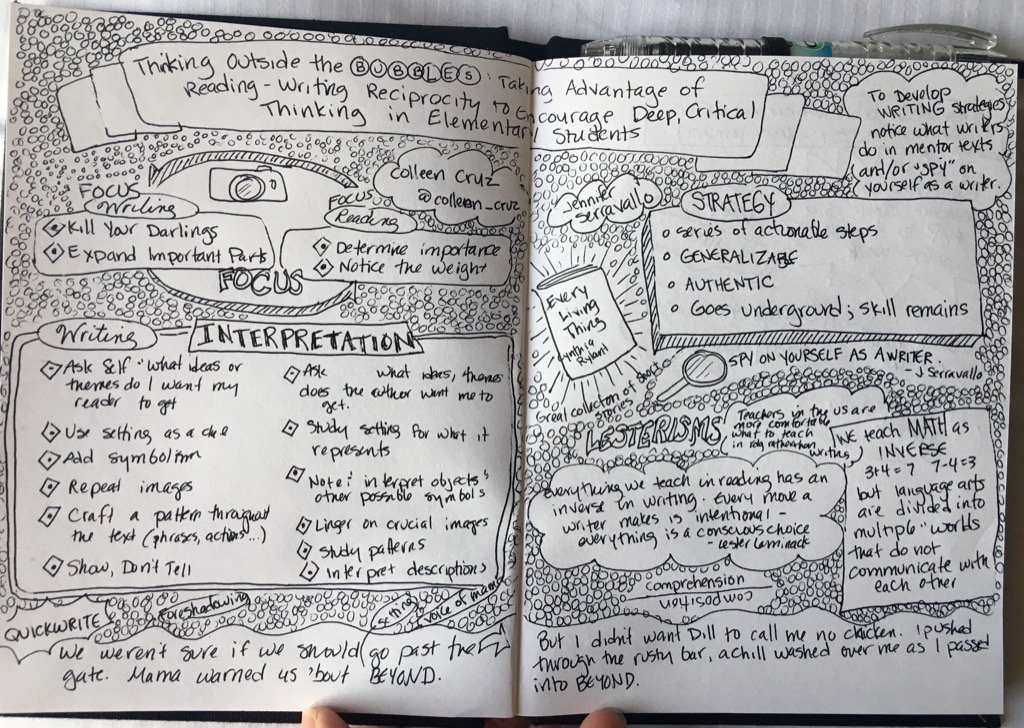 Thinking Outside the BUBBLES: Taking Advantage of
Reading-Writing Reciprocity to Encourage Deep, Critical
Thinking in Elementary Students
Colleen Cruz
@colleen_cruz
FOCUS
Writing
Kill Your Darlings
Expand Important Parts
FOCUS
Reading
Determine importance
Notice the weight
FOCUS
INTERPRETATION
Writing
Ask Self "what ideas or
themes do I want my
reader to get
Use setting as a clue
Add symbolism
Repeat images
Craft a pattern throughout
the text (phrases, actions...)
Show, Don't Tell
Ask what ideas, themes
does the author want me to
get.
Study setting for what it
represents
Note & interpret objects &
other possible symbols
Linger on crucial images
Study patterns
Interpret descriptions
QUICKWRITE
Foreshadowing
setting
voice of
We weren't sure if we should go past the
gate. Mama warned us 'bout BEYOND.
To Develop
WRITING Strategies
notice what writers
do in mentor texts
and/or "spy" on
yourself as a writer.
Jennifer
Serravallo
STRATEGY
series of actionable steps
GENERALIZABLE
AUTHENTIC
Goes underground; skill remains
Every
Living
Thing
Cynthia
Rylant
Great collection of short
stories
SPY ON YOURSELF AS A WRITER.
- J Serravallo
LESTERISMS
Teachers in the US are
more comfortable
what to teach
in rdg rather than
writing
Everything we teach in reading has an
inverse in writing. Every move a
writer makes is intentional -
everything is a conscious choice
- Lester Laminack
comprehension
composition
We teach MATH as
INVERSE
3+4=7 7-4=3
but language arts
are divided into
multiple "worlds
that do not
communicate with
each other
But I didn't want Dill to call me no chicken. I pushed
through the rusty bar, a chill washed over me as I passed
into BEYOND.